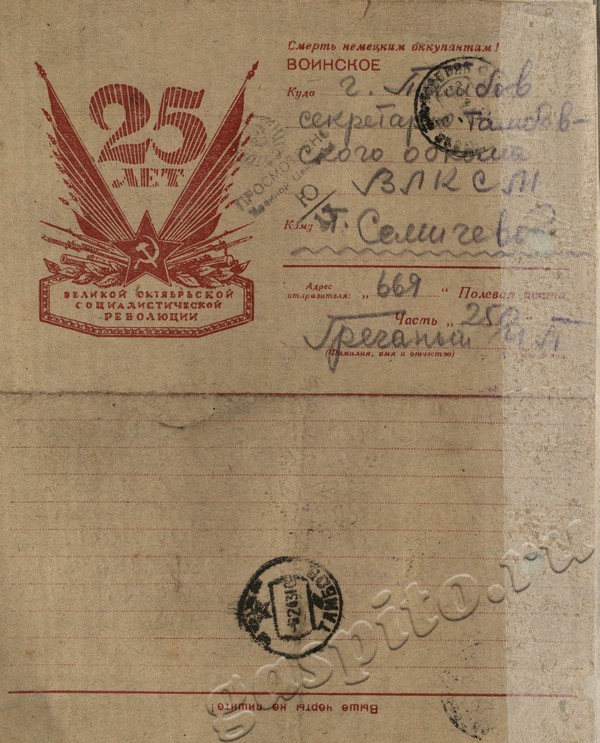 25
ЛЕТ
ВЕЛИКОЙ ОКТЯБРЬСКОЙ
СОЦИАЛИСТИЧЕСКОЙ
РЕВОЛЮЦИИ
Смерть немецким оккупантам!
ВОИНСКОЕ
Куда г. Тамбов
секретарю Тамбов-
ского обкома
ВЛКСМ
Кому т. Семичево
Адрес отправителя: „ 669 “ Полевая почта
Часть „ 250
Гречаный И П
(Фамилия, имя и отчество)
ПРОСМОТРЕНО
Военной Цензурой
ТАМБОВ
Выше черты не пишите!
gaspito.ru